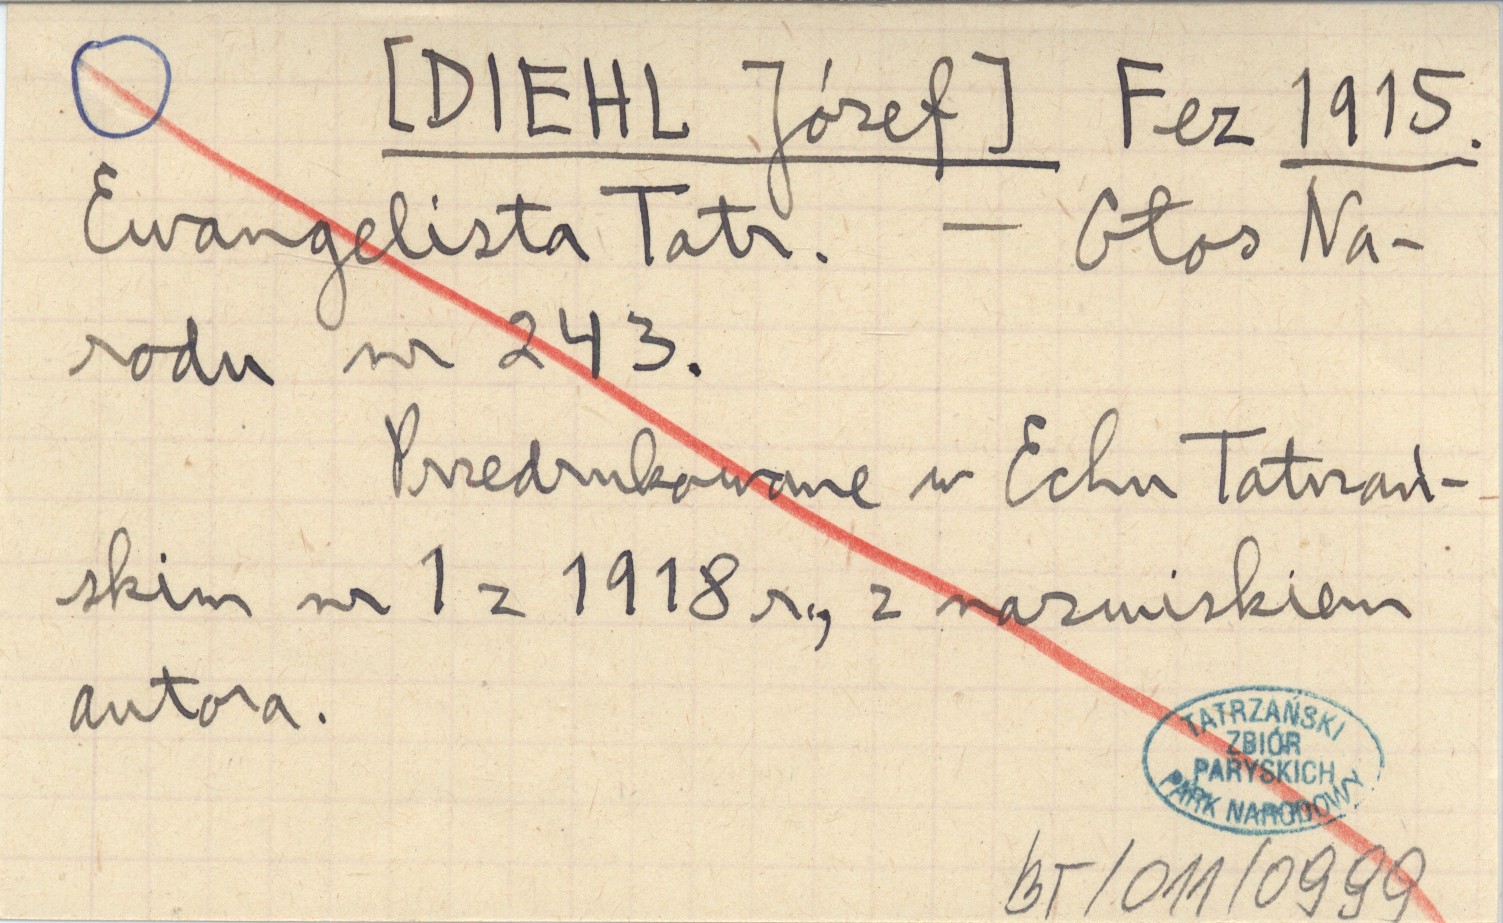 [DIEHL Józef] Fez 1915.
Ewangelista Tatr. — Głos Na-
rodu nr 243.
Przedrukowane w Echu Tatrzań-
skim nr 1 z 1918 r., z nazwiskiem
autora.
TATRZAŃSKI
ZBIÓR
PARYSKICH
PARK NARODOWY
BT/011/0999